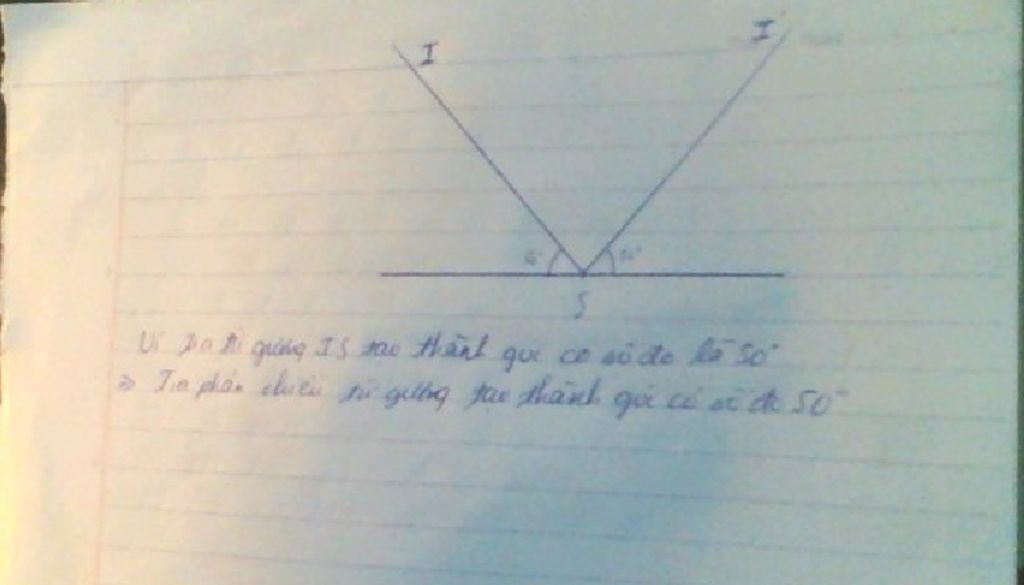 I
I'
50°
S
Vì tia tới gương IS tạo thành góc có số đo là 50°
=> Tia phản chiếu từ gương tạo thành góc có số đo 50°